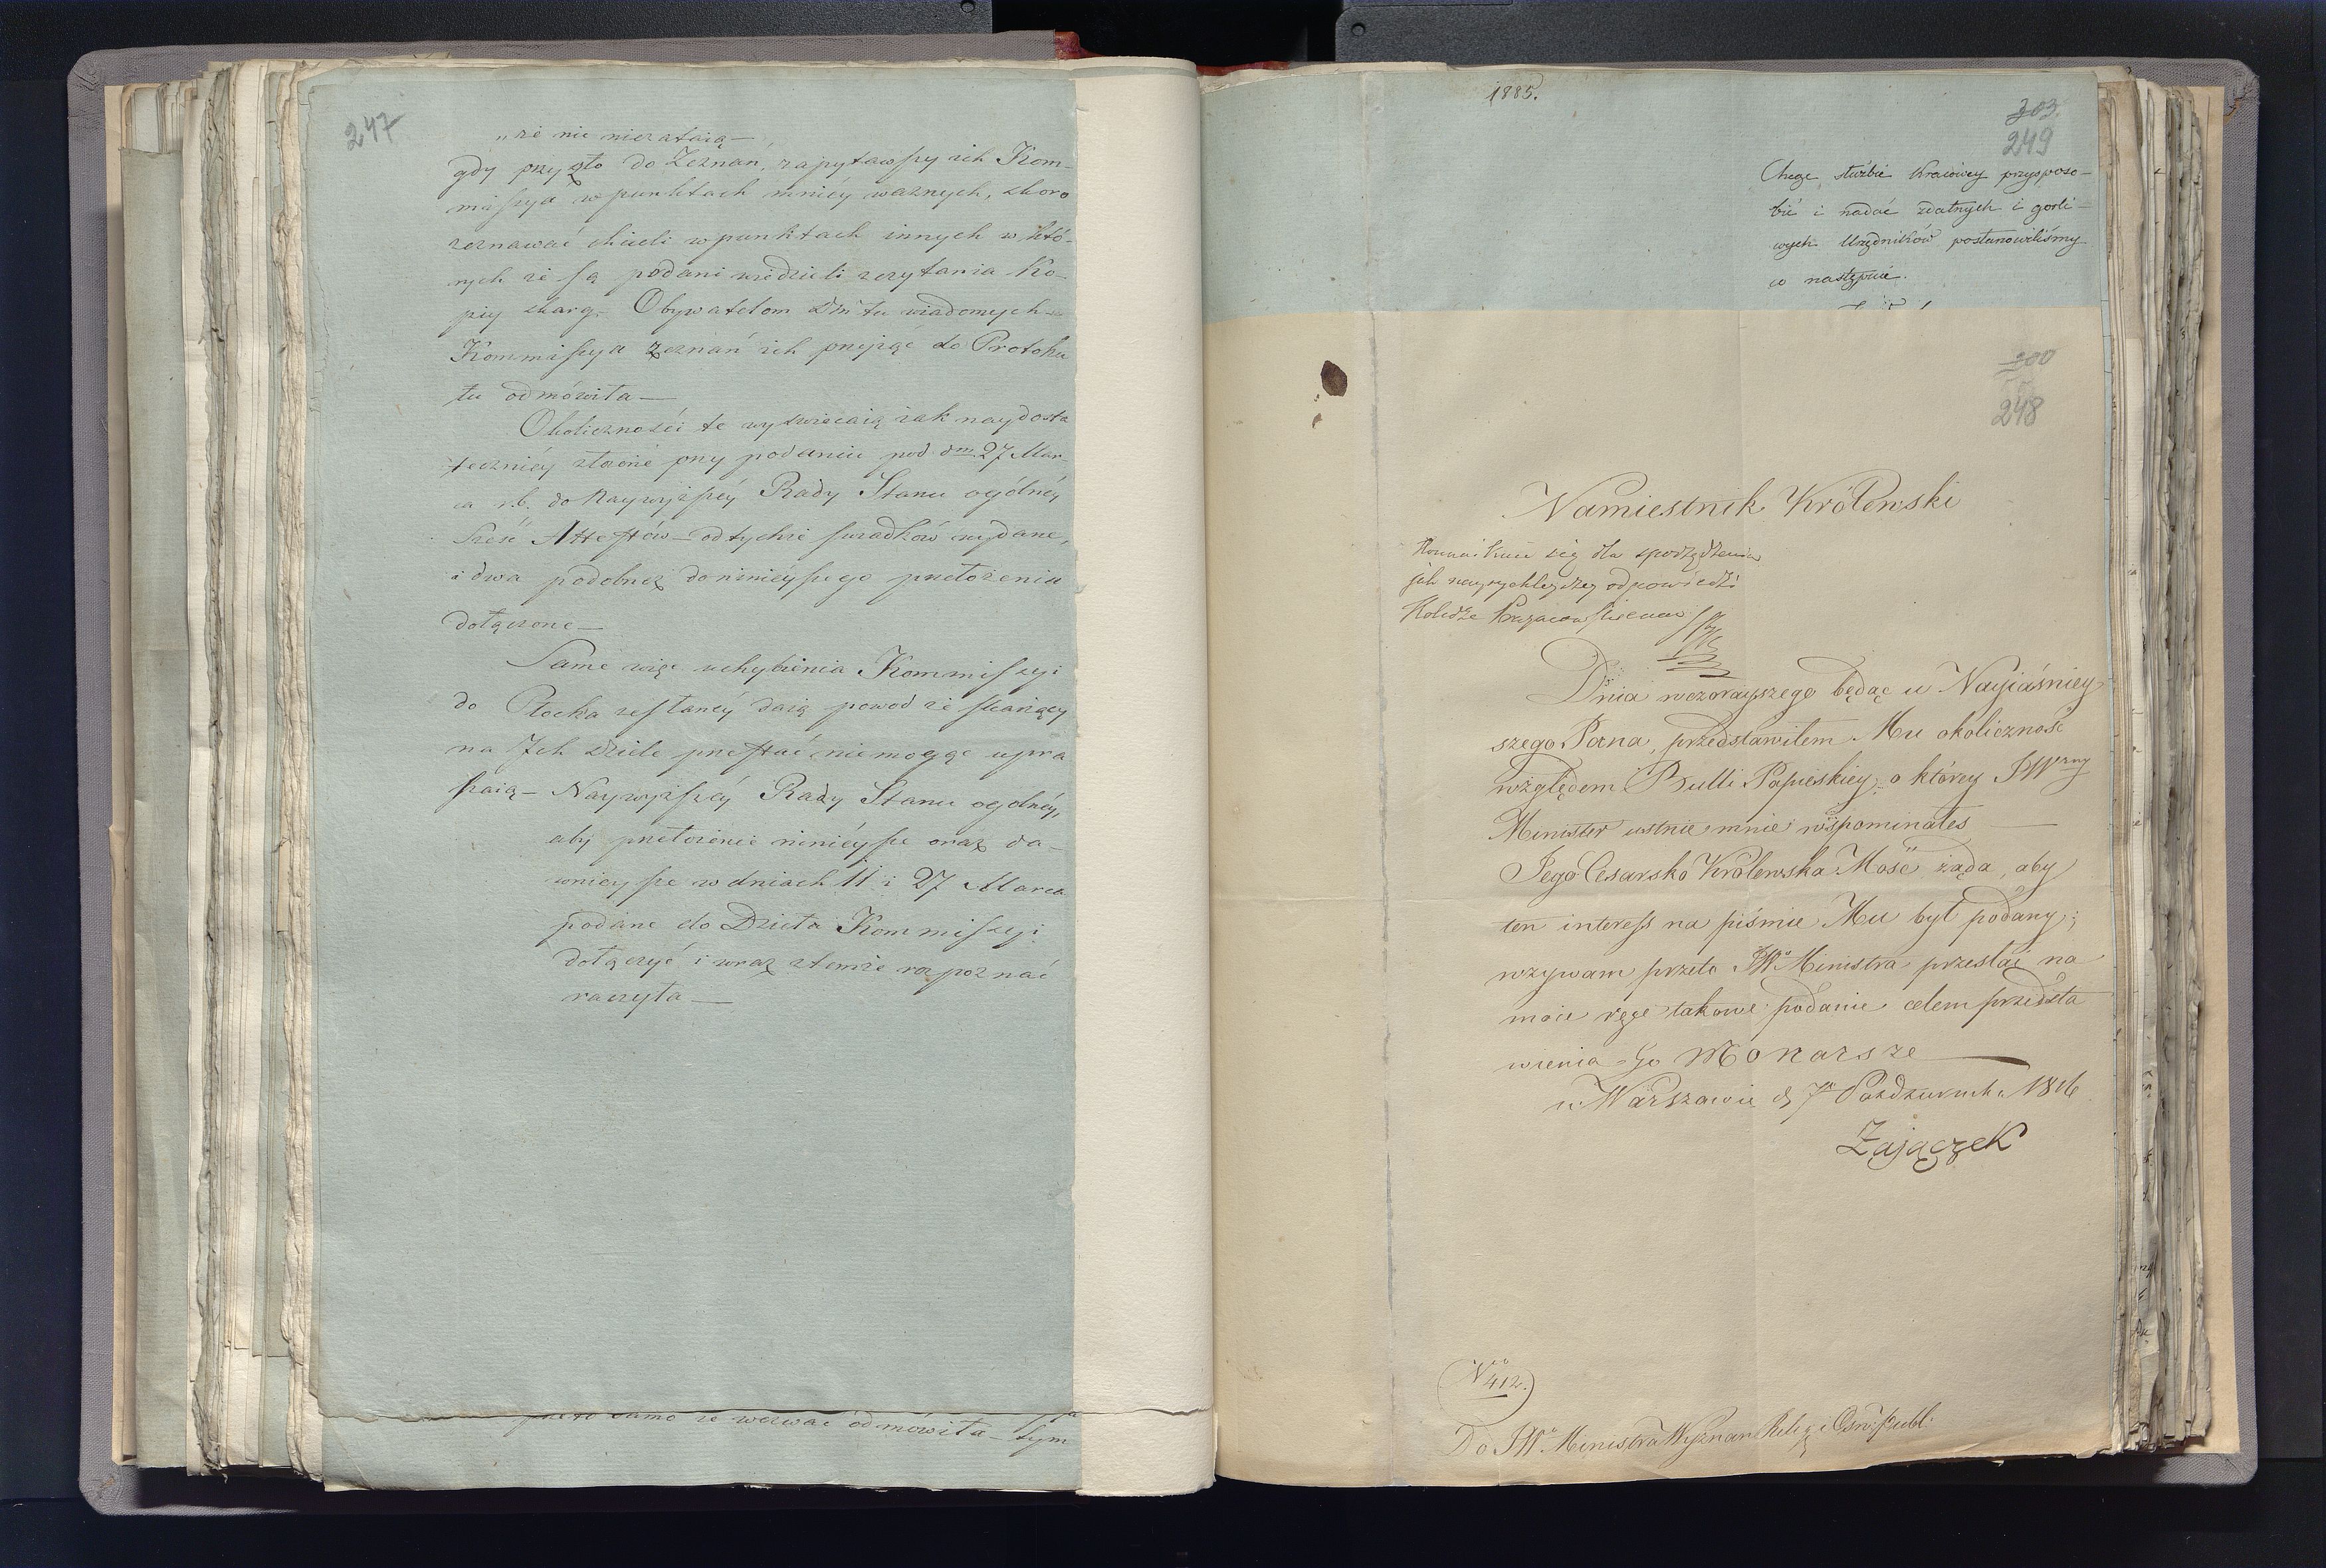 247
„że nic niezataią —
gdy przyszło do Zeznań, zapytawszy ich Kom-
missya w punktach mniéy ważnych, skoro
zeznawać chcieli w punktach innych w któ-
rych że są podani wiedzieli z czytania Ko-
piy skarg. Obywatelom Dnttu wiadomych —
Kommissya zeznań ich przyjąć do Protoku
łu odmówiła —
Okoliczności te wyświecaią iak naydosta
teczniéy złożone przy podaniu pod dm 27 Mar
ca r.b. do Naywyższéy Rady Stanu ogólnéy
Sześć Attestów — od tychże swiadków wydane,
i dwa podobneż do ninieyszego przełożenia
dołączone —
Same więc uchybienia Kommissyi
do Płocka zesłanéy daią powod że skarżący
na Jch dziele przestać niemogąc upra
szaią — Naywyższéy Rady Stanu ogólnéy,
aby przełożenie ninieysze oraz da-
wnieysze w dniach 11 i 27 Marca
podane do Dzieła Kommissyi
dołączyć i wraz z temże rozpoznać
raczyła —
przeto samo że wezwać odmówiła — tym
1885.
303.
249
Chcąc służbie Kraiowey przysposo-
bić i nadać zdatnych i gorli-
wych Urzędników postanowiliśmy
co następuie.
300
248
Namiestnik Królewski
Kommunikuie się dla sporządzenia
jak nayrychleyszey odpowiedzi
Koledze
Dnia wczorayszego będąc u Nayiaśniey
szego Pana, przedstawiłem Mu okoliczność
względem Bulli Papieskiey, o którey JWzny
Minister ustnie mnie wspominałeś —
Jego Cesarsko Królewska Mość żąda, aby
ten interess na piśmie Mu był podany;
wzywam przeto JWo Ministra przesłać na
moie ręce takowe podanie celem przedsta
wienia Go Monarsze —
w Warszawie d 7o Października 1816
Zajączek
No 412.
Do JWo Ministra Wyznań Relig: i Ośw: Publ: